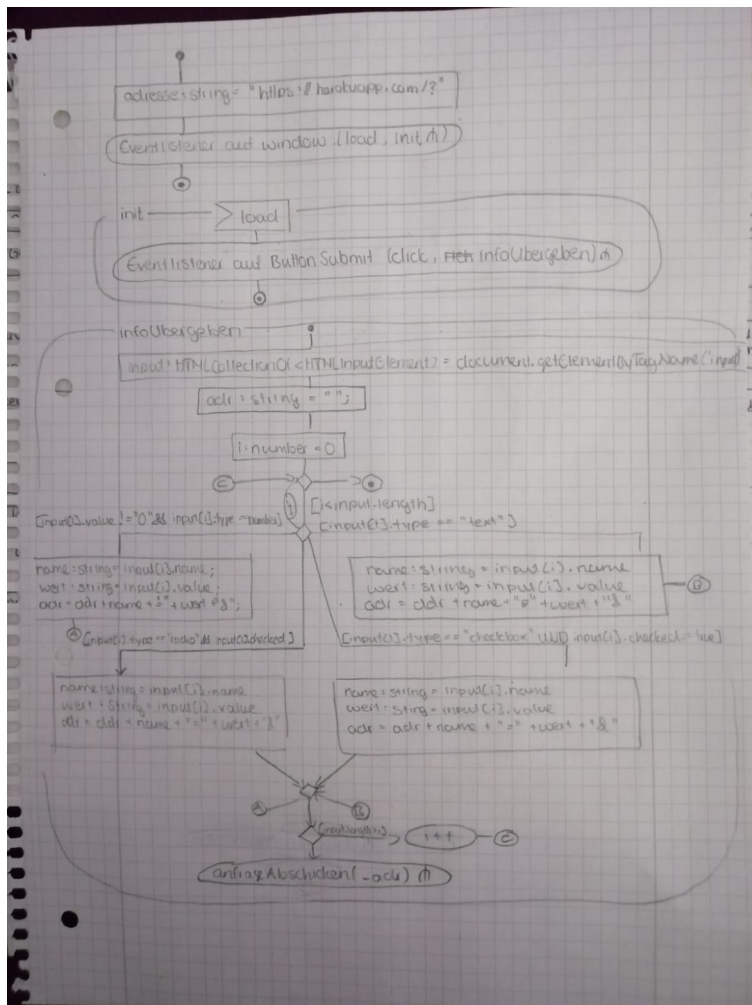 adresse: string = "https://herokuapp.com/?"
Eventlistener auf window (load, init)
init
load
Eventlistener auf Button Submit (click, infoUbergeben)
infoUbergeben
input: HTMLCollectionOf<HTMLInputElement> = document.getElementByTagName(input)
adr: string = "";
i: number = 0
C
[i<input.length]
[input(i).value != "0" && input(i).type == number]
[input(i).type == "text"]
name: string = input(i).name;
wert: string = input(i).value;
adr = adr + name + "=" + wert + "&";
name: string = input(i).name
wert: string = input(i).value
adr = adr + name + "=" + wert + "&"
B
A
[input(i).type == "radio" && input(i).checked]
[input(i).type == "checkbox" UND input(i).checked == true]
name: string = input(i).name
wert: string = input(i).value
adr = adr + name + "=" + wert + "&"
name: string = input(i).name
wert: string = input(i).value
adr = adr + name + "=" + wert + "&"
A
B
i++
C
anfrageAbschicken(_adr)